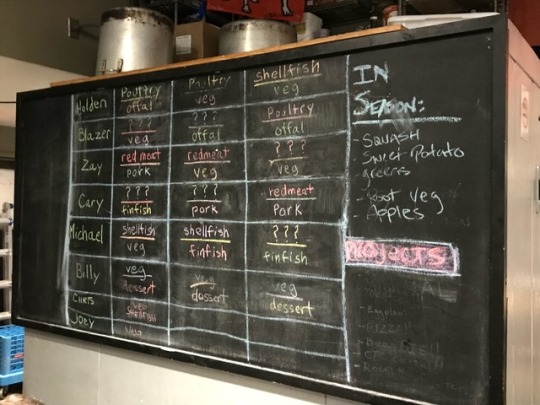 Holden Poultry Poultry shellfish
offal veg veg
Blazer ??? ??? Poultry
veg offal offal
Zay redmeat redmeat ???
pork veg veg
Cary ??? ??? redmeat
finfish pork Pork
Michael shellfish shellfish ???
veg finfish finfish
Billy veg veg veg
dessert dessert dessert
CHRIS veg
shellfish
Joey veg
IN
SEASON:
- SQUASH
- Sweet Potato
- greens
- Root veg
- Apples
PROJECTS